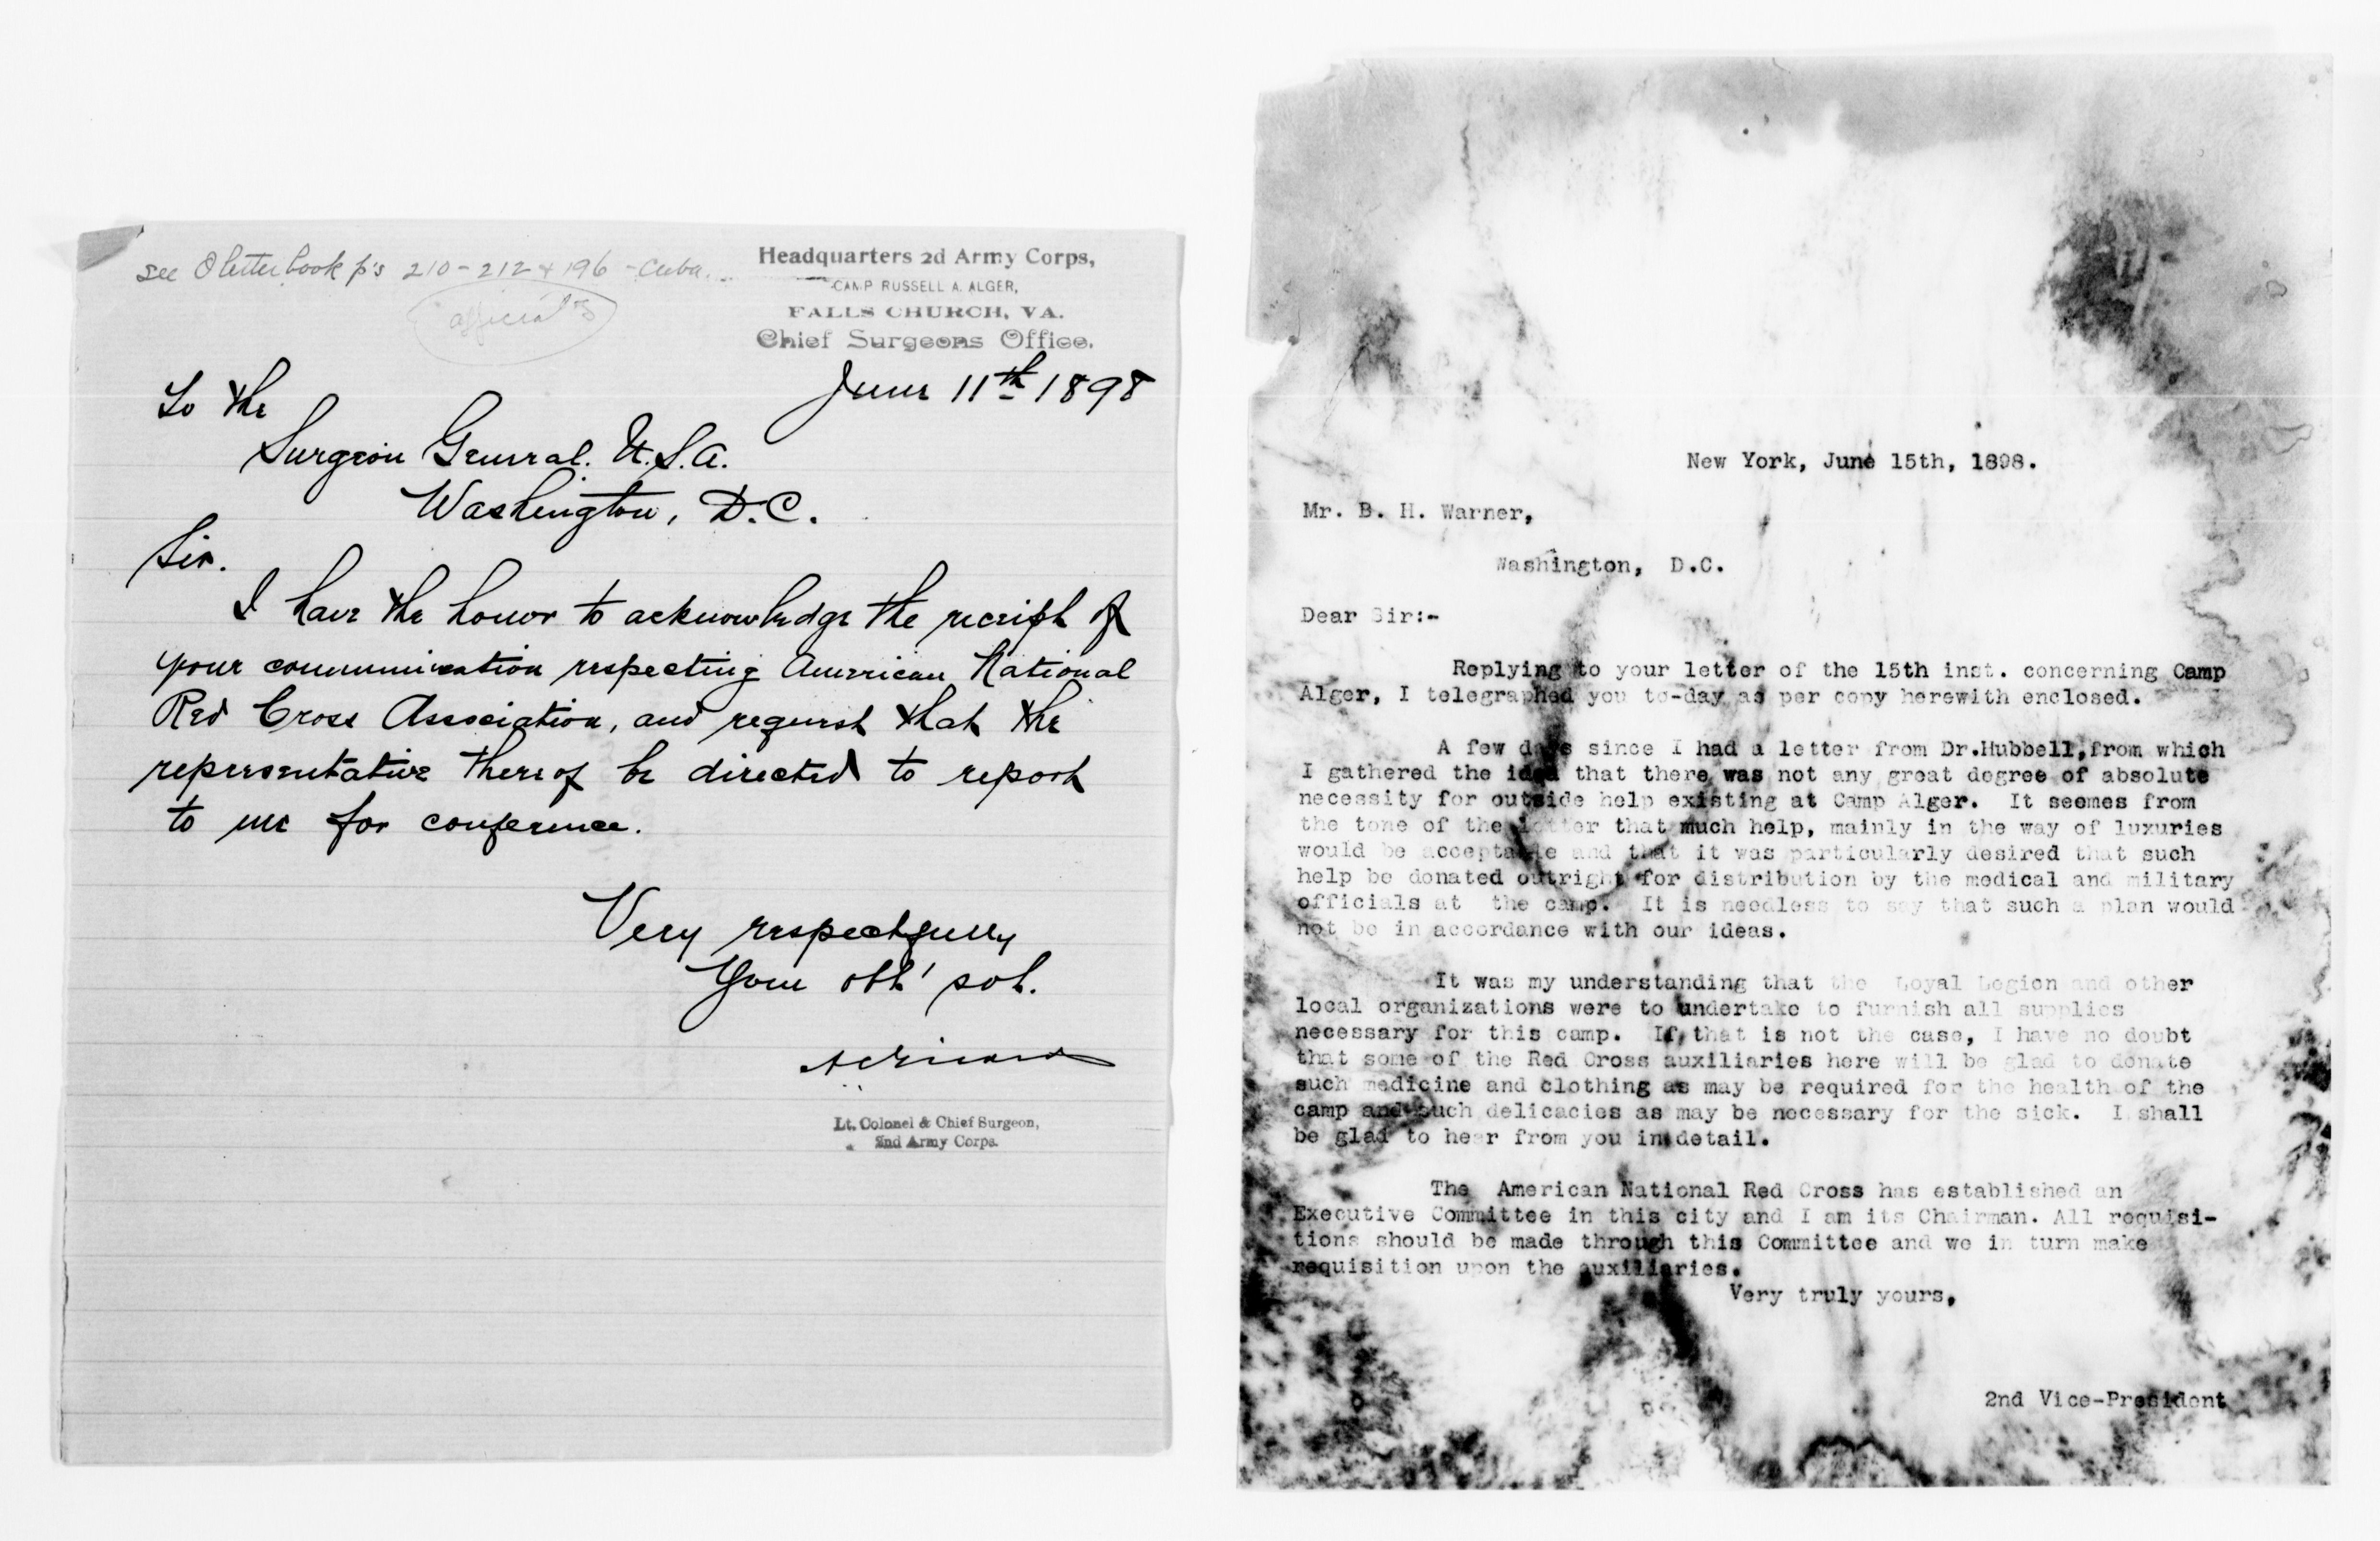 see letter book p's 210-212 & 196 - Cuba.
officials
Headquarters 2d Army Corps,
CAMP RUSSELL A. ALGER,
FALLS CHURCH, VA.
Chief Surgeons Office.
June 11th 1898
To the
Surgeon General. U.S.A.
Washington, D.C.
Sir.
I have the honor to acknowledge the receipt of
your communication respecting American National
Red Cross Association, and request that the
representative thereof be directed to report
to me for conference.
Very respectfully
Your obt' svt.
Lt. Colonel & Chief Surgeon,
2nd Army Corps.
New York, June 15th, 1898.
Mr. B. H. Warner,
Washington, D.C.
Dear Sir:-
Replying to your letter of the 15th inst. concerning Camp
Alger, I telegraphed you to-day as per copy herewith enclosed.
A few days since I had a letter from Dr.Hubbell,from which
I gathered the idea that there was not any great degree of absolute
necessity for outside help existing at Camp Alger. It seemes from
the tone of the letter that much help, mainly in the way of luxuries
would be acceptable and that it was particularly desired that such
help be donated outright for distribution by the medical and military
officials at the camp. It is needless to say that such a plan would
not be in accordance with our ideas.
It was my understanding that the Loyal Legion and other
local organizations were to undertake to furnish all supplies
necessary for this camp. If that is not the case, I have no doubt
that some of the Red Cross auxiliaries here will be glad to donate
such medicine and clothing as may be required for the health of the
camp and such delicacies as may be necessary for the sick. I shall
be glad to hear from you in detail.
The American National Red Cross has established an
Executive Committee in this city and I am its Chairman. All requisi-
tions should be made through this Committee and we in turn make
requisition upon the auxiliaries.
Very truly yours,
2nd Vice-President